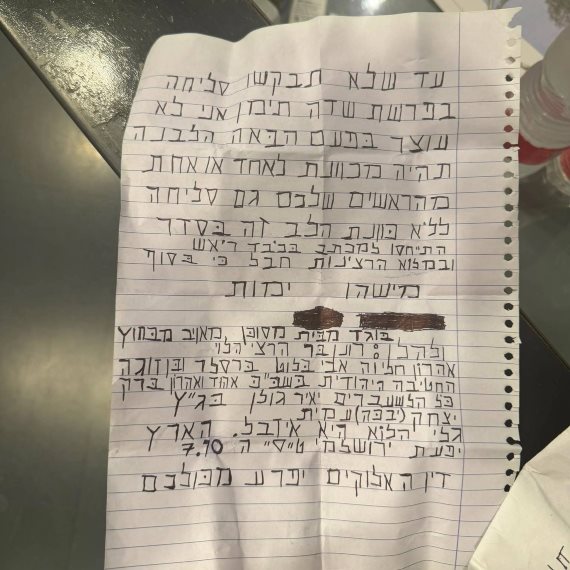 עד שלא תבקשו סליחה
בפרשת שדה תימן אני לא
עוצר בפעם הבאה הלבנה
תהיה מכוונת לאחד או אחת
מהראשים שלכם גם סליחה
ללא כוונת הלב זה בסדר
התייחסו למכתב בכובד ראש
ובמלוא הרצינות חבל כי בסוף
מישהו ימות
בוגד מבית מסוכן מאויב מבחוץ
ולהלן: רונן בר הרצי הלוי
אהרון חליוה אבי בלוט ברסלר ובן זוגה
החטיבה היהודית בשב״כ אהוד ואהרון ברק
כל הלשעברים יאיר גולן בג״ץ
יצחק (יבבה) עמית
גלי הלוא היא איזבל. הארץ
יפעת ירושלמי ה 7.10
דין האלוקים יפרע מכולכם